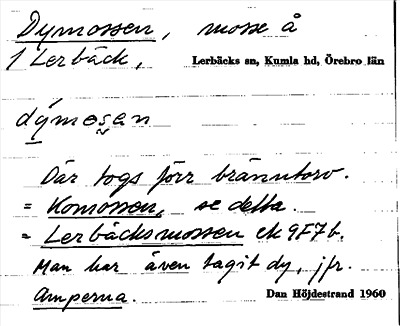 Dymossen, mosse å
1 Lerbäck, Lerbäcks sn, Kumla hd, Örebro län
dýmosan
Där togs förr bränntorv.
= Komossen, se detta.
= Lerbäcksmossen ek 9F7b.
Man har även tagit dy, jfr.
Amperna. Dan Höjdestrand 1960